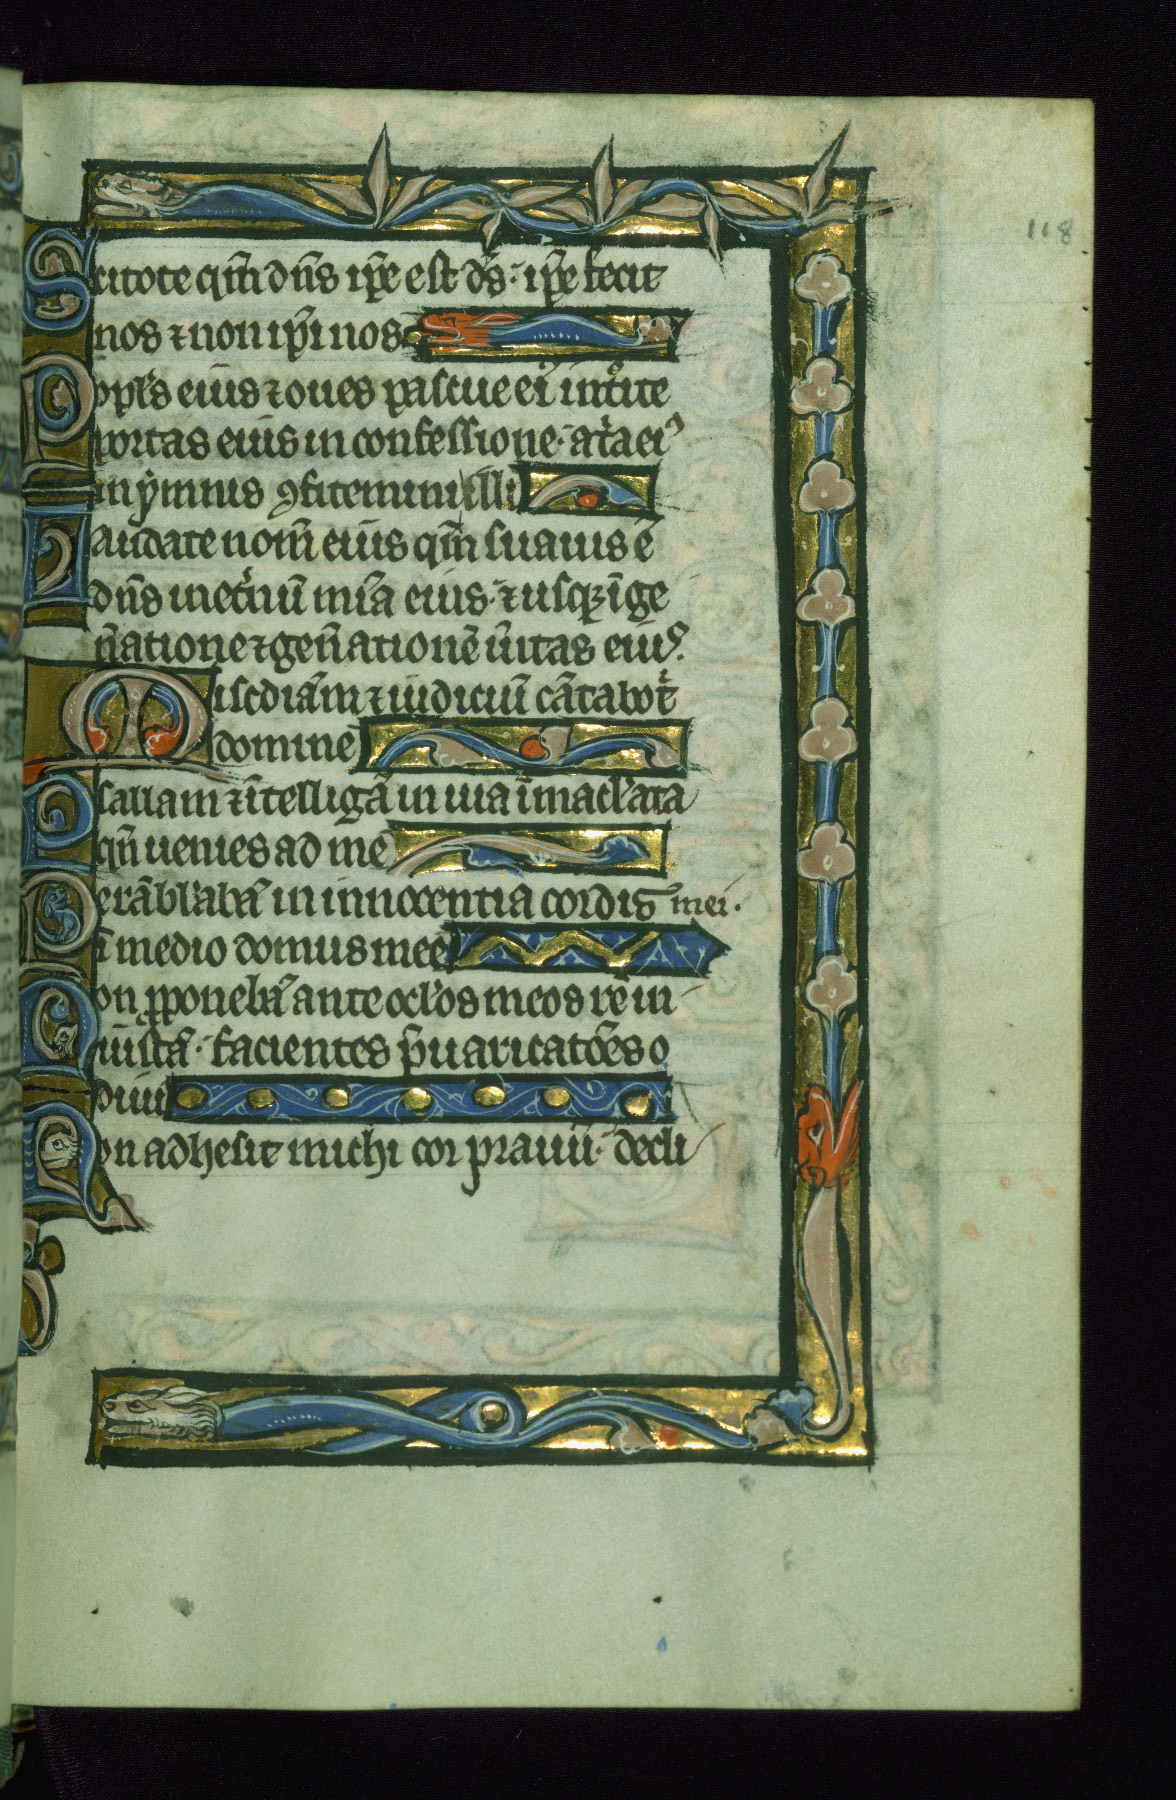 118
Scitote qm̄ dn̄s ip̄e est ds̄· ip̄e fecit
nos ⁊ non ip̄i nos
Popl's eius ⁊ oues pascue ei' int͛ite
portas eius in confessione· at͛a ei'
in ymnis ꝯfitemini illi
Laudate nom̄ eius qm̄ suauis ē
dn̄s in et͛nū mīa eius· ⁊ usqꝫ ī ge
n̄atione ⁊ gen̄ationē ūitas eiu'.
Miscdiām ⁊ iudiciū cātabo t͛
domine
Psallam ⁊ ītelligā in uia īmacl'ata
qn̄ uenies ad me
Perābl'aba' in innocentia cordis mei.
ī medio domus mee
Non ꝓponeba' ante ocl'os meos rē in
iustā· facientes p̄uaricatōes o
diui
Non adhesit michi cor prauū· decli